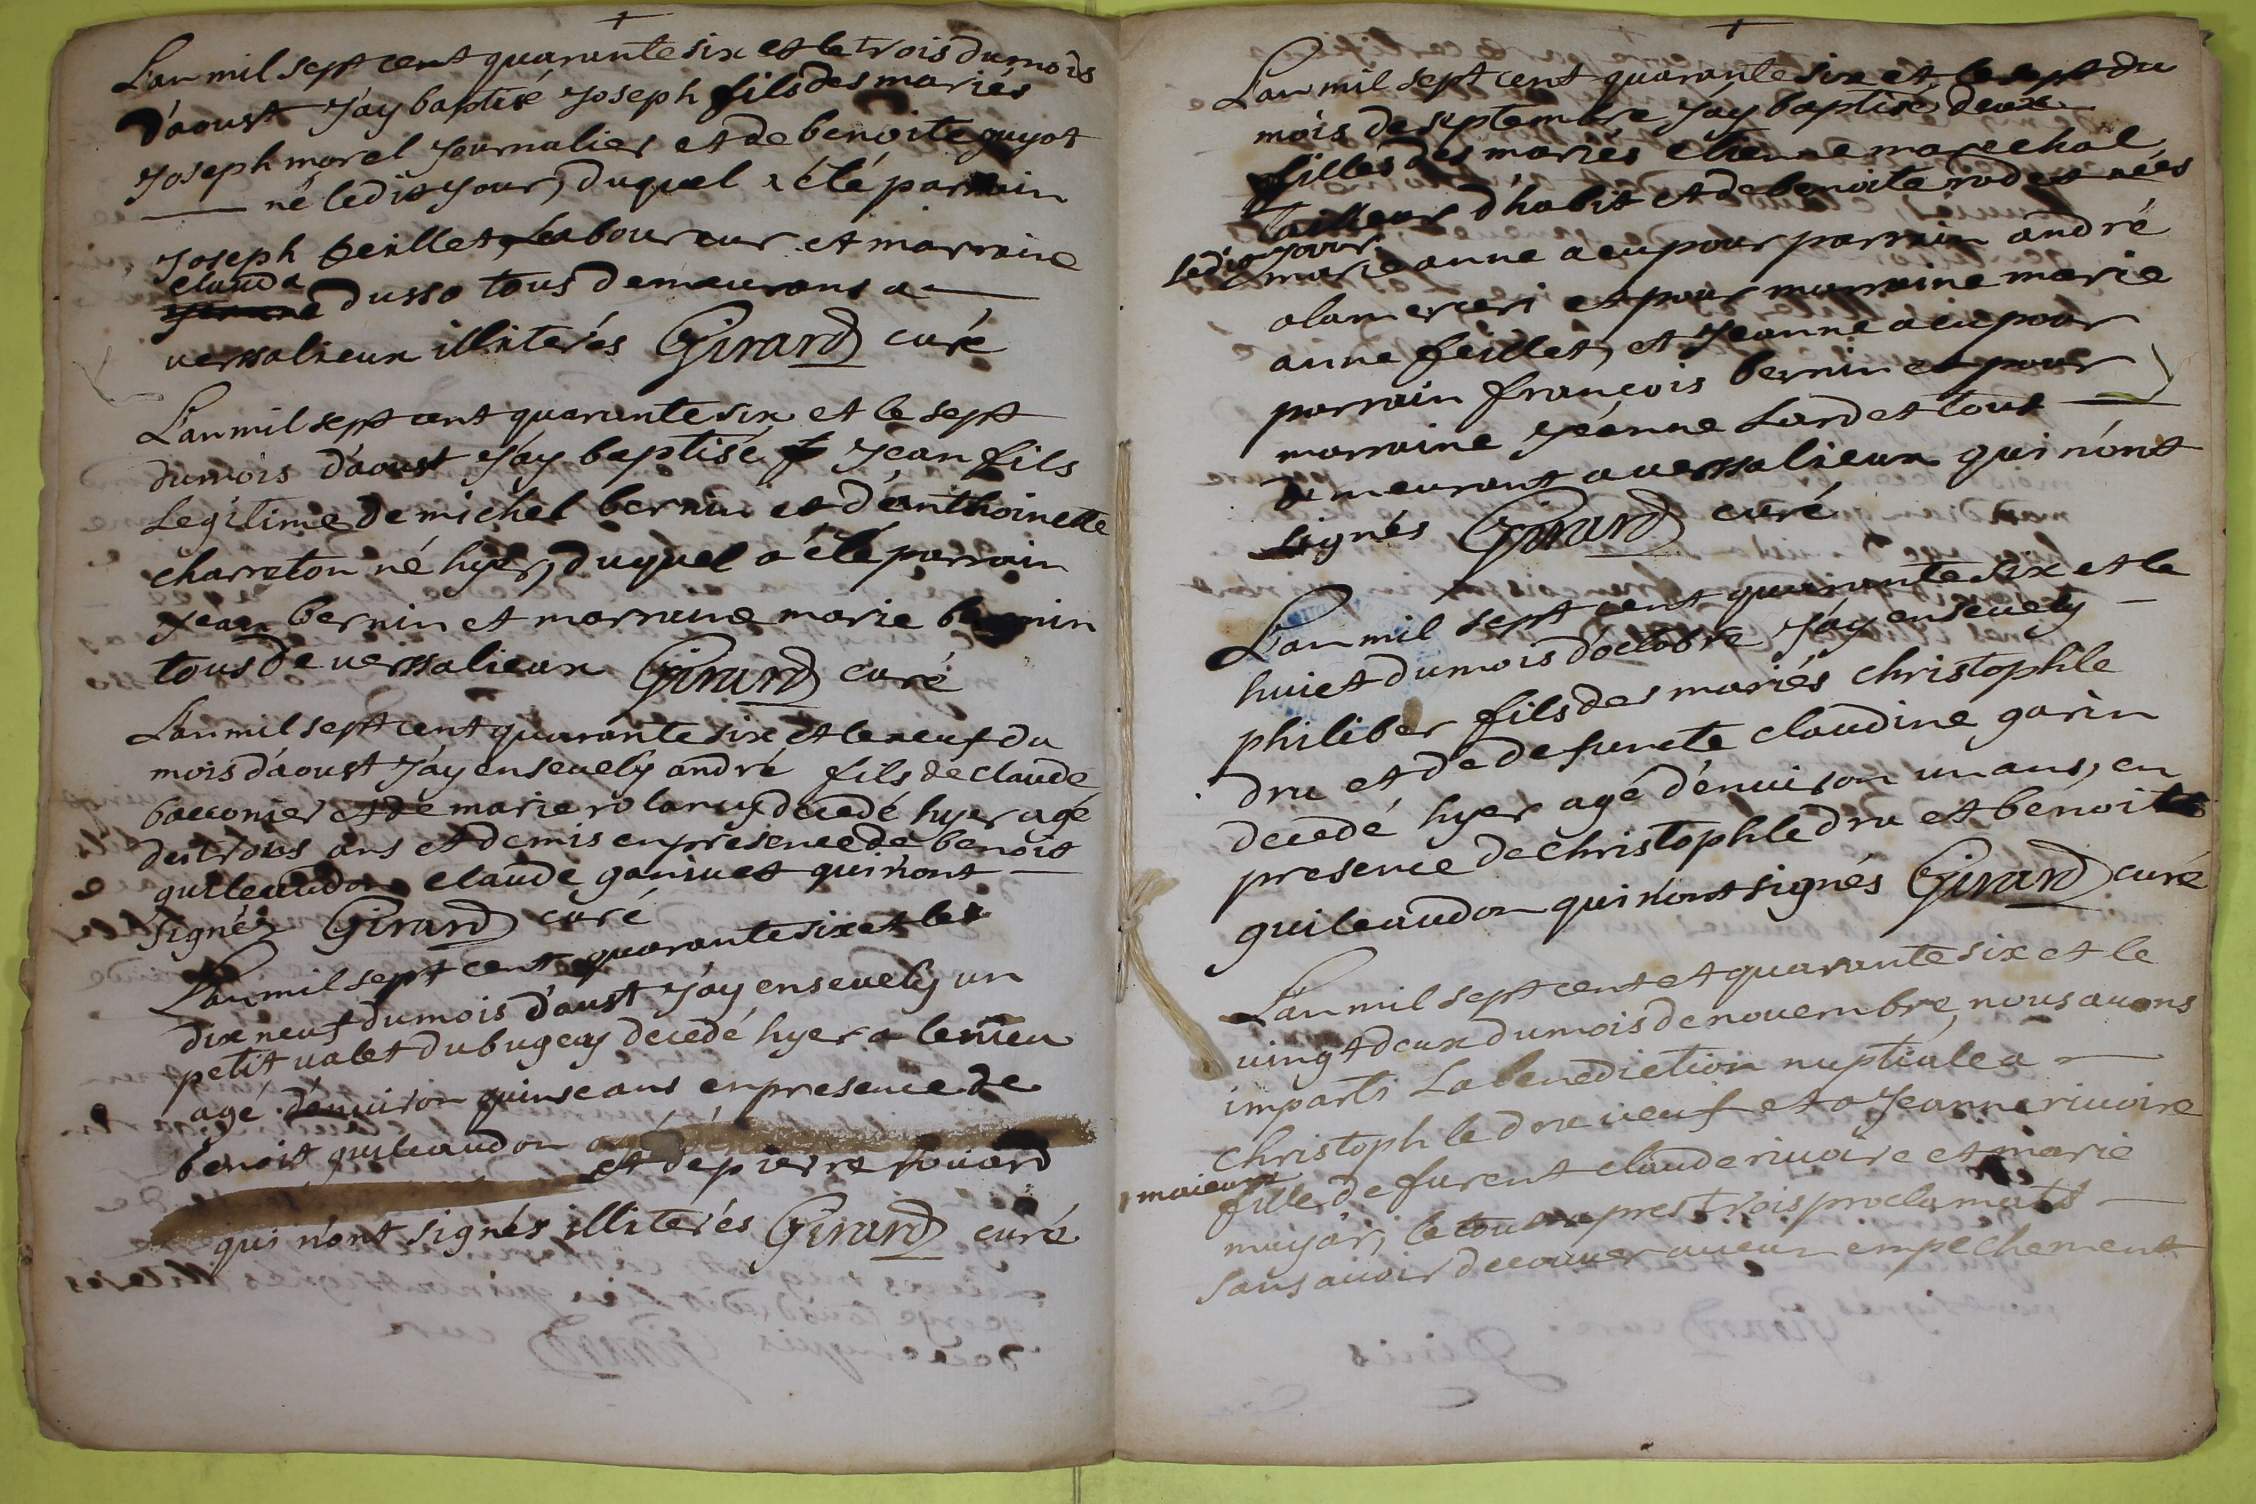 L'an mil sept cent quarante six et le trois du mois
d'aoust J'ay baptisé Joseph fils des mariés
Joseph morel Journalier et de benoite guyot
né ledit Jour, duquel a été parrain
Joseph feillet, Laboureur et marraine
clauda
dusso tous demeurans a
versalieux illiterés Girard curé
L'an mil sept cent quarante six et le sept
du mois d'aoust J'ay baptisé Jean fils
Legitime de michel bernin et d'anthoinette
charreton né hyer, duquel a été parrain
Jean bernin et marraine marie bernin
tous de versalieux Girard curé
L'an mil sept cent quarante six et le neuf du
mois d'aoust J'ay ensevely andré fils de claude
bacconier et de marie rolan decedé hyer agé
des trois ans et demis en presence de benoit
guileaudon claude ganivet qui n'ont
signés Girard curé
L'an mil sept cent quarante six et le
dix neuf du mois d'aust J'ay ensevely un
petit valet du bugey decedé hyer a
agé d'environ quinse ans en presence de
benoit guileaudon
et de pierre
qui n'ont signés illiterés Girard curé
L'an mil sept cent quarante six et le sept du
mois de septembre J'ay baptisé deux
filles des mariés etienne marechal
tailleur d'habit et de benoite rodet nées
ledit Jour
marie anne a eu pour parrain andré
et pour marraine marie
anne feillet, et Jeanne a eu pour
parrain françois bernin et pour
marraine Jeanne Lardet tous
demeurant a versalieux qui n'ont
signés Girard curé
L'an mil sept cent quarante six et le
huict du mois d'octobre J'ay ensevely
philiber fils des mariés christophle
dru et de defuncte claudine garin
decedé hyer agé d'environ un ans, en
presence de christophle dru et benoit
guileaudon qui n'ont signés Girard curé
L'an mil sept cent et quarante six et le
vingt deux du mois de novembre, nous avons
imparti La benediction nuptiale a
christophle dru veuf et a Jeanne rivoire
maieure
fille de furent claude rivoire et marie
le tout apres trois proclamats
sans avoir decouver aucun empechement